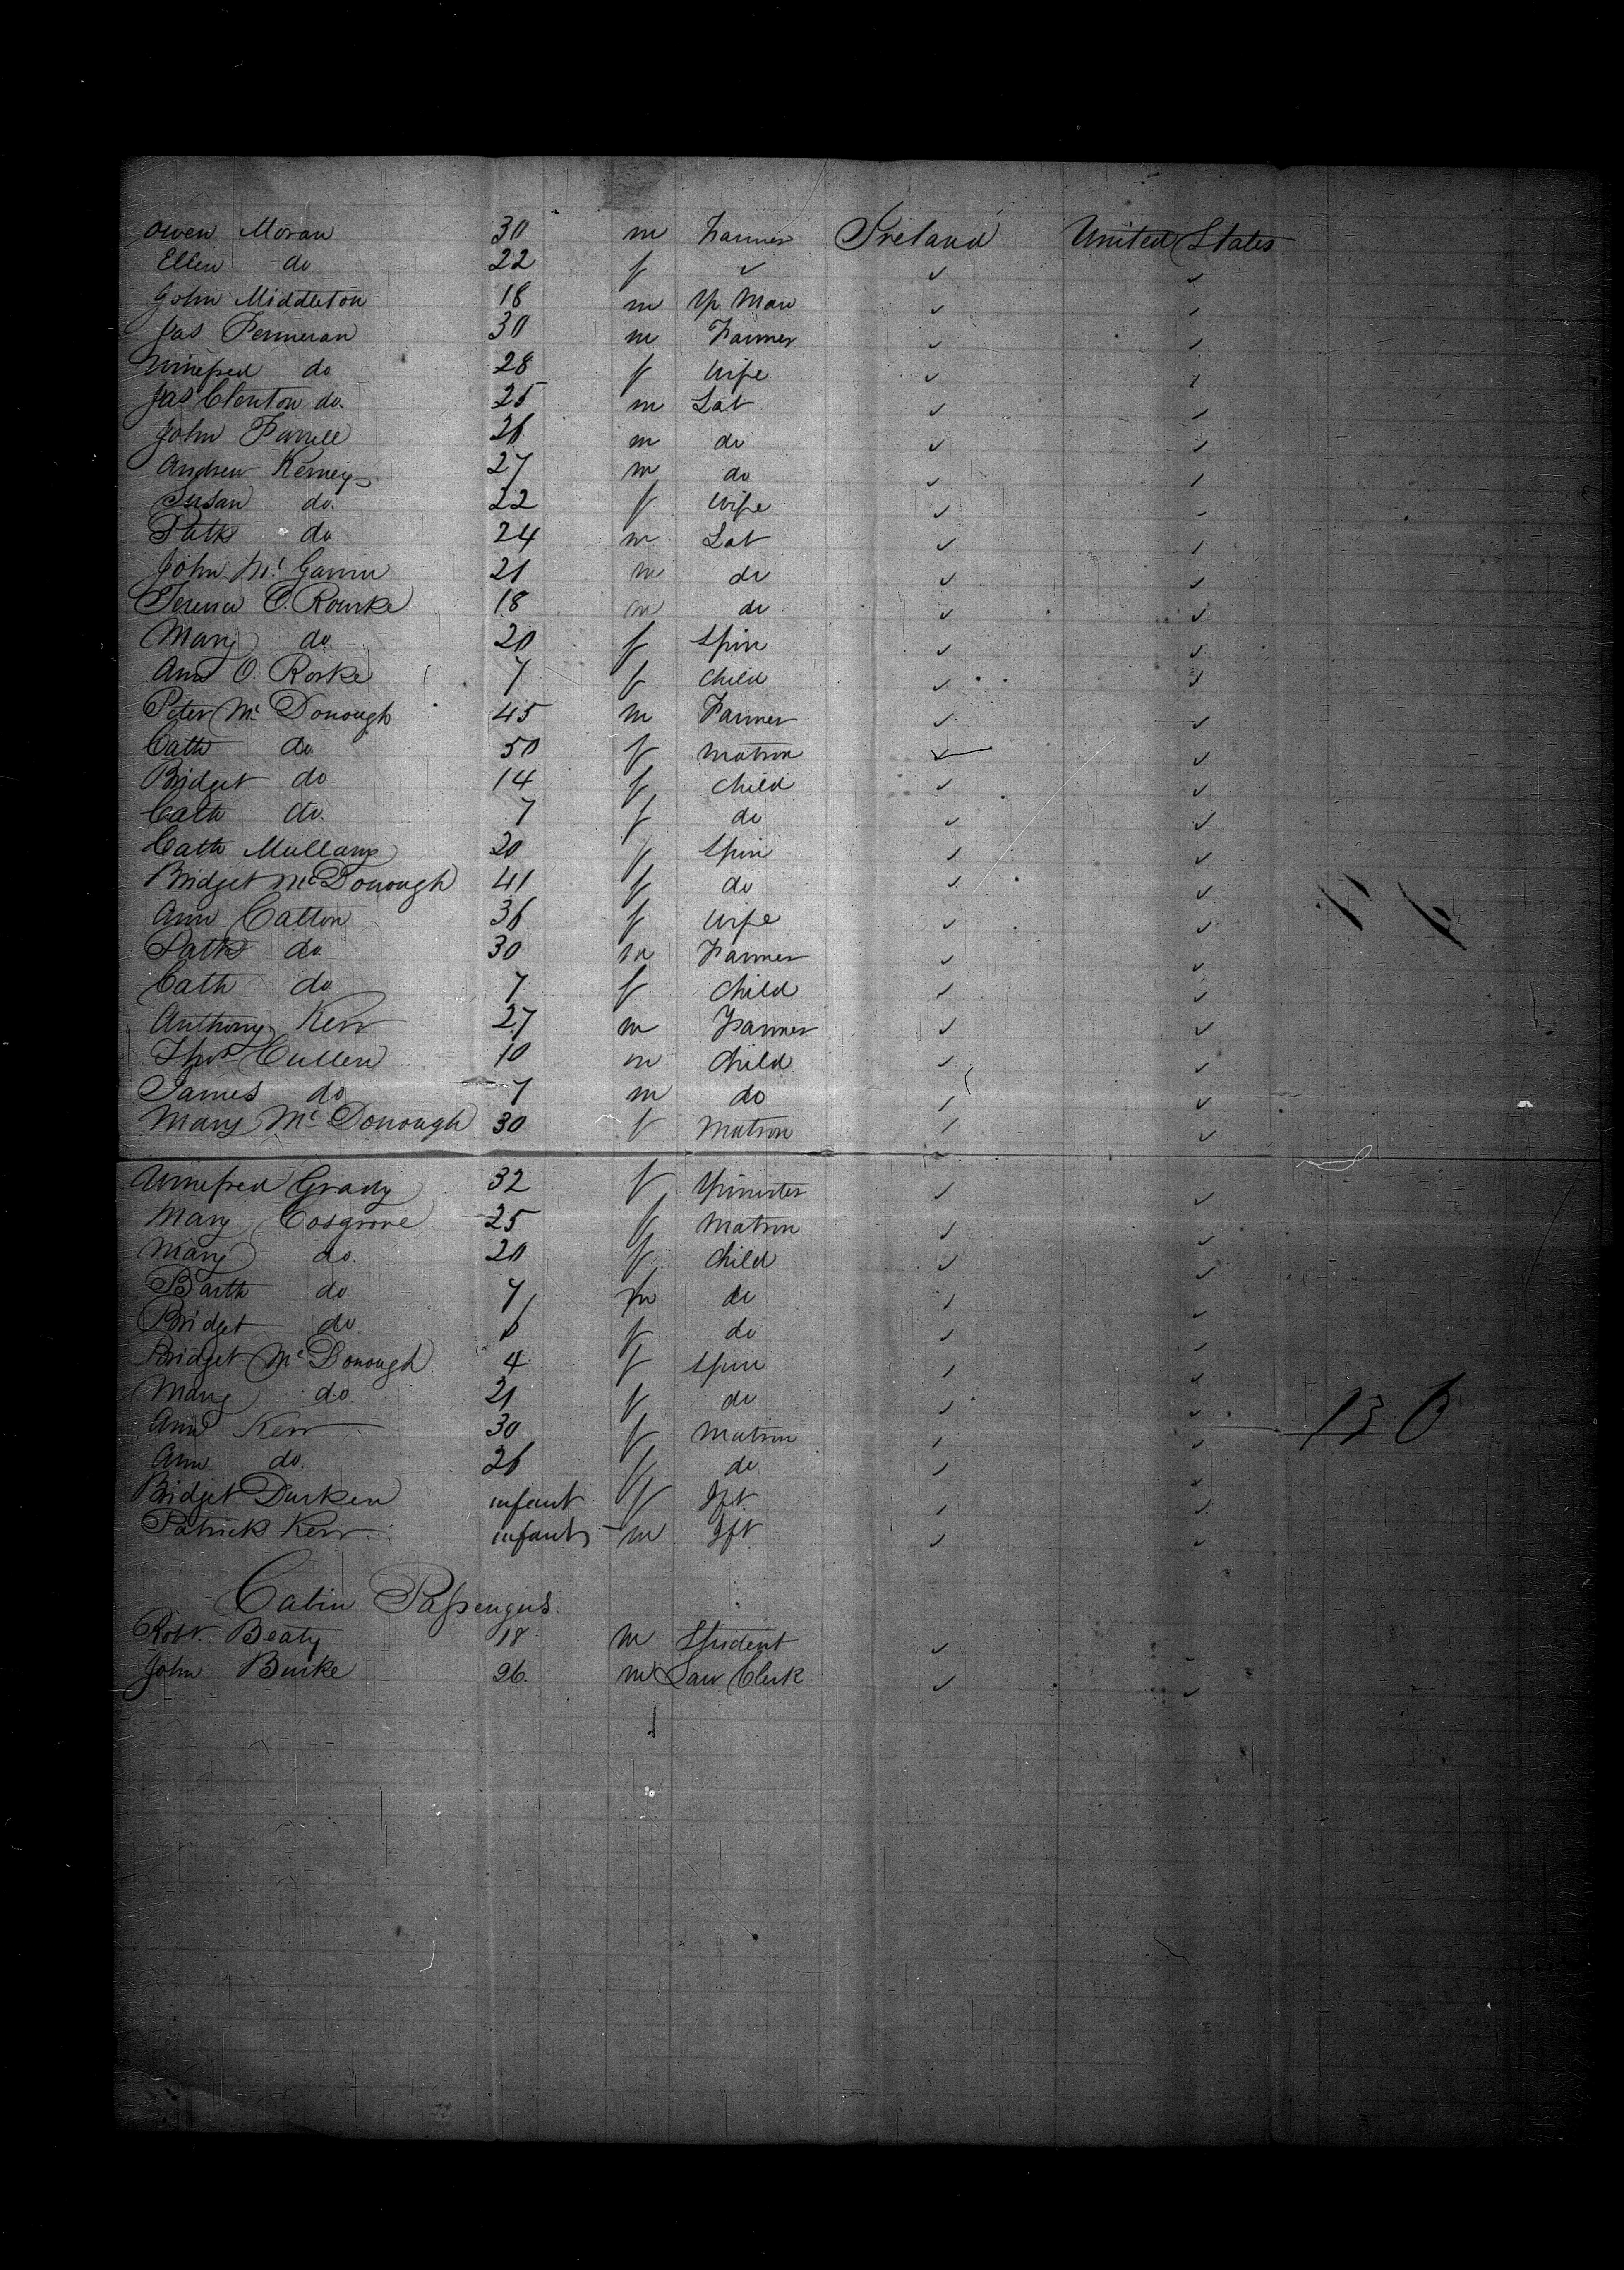 Owen Moran 30 m Farmer Ireland United States
Ellen do 22 f ✓ ✓ ✓
John Middleton 18 m Man ✓ ✓
Jas 30 m Farmer ✓ ✓
Winefred do 28 f Wife ✓ ✓
Jas Clenton do. 25 m Lab ✓ ✓
John Farrell 26 m do ✓ ✓
Andrew Kerney 27 m do ✓ ✓
Susan do. 22 f Wife ✓ ✓
Patk do 24 m Lab ✓ ✓
John Mc 21 m do ✓ ✓
O. Rourke 18 m do ✓ ✓
Mary do 20 f Spin ✓ ✓
Ann O. Rorke 7 f Child ✓ ✓
Peter Mc Donough 45 m Farmer ✓ ✓
Cath do 50 f Matron ✓ ✓
Bridget do 14 f Child ✓ ✓
Cath do. 7 f do ✓ ✓
Cath Mullany 20 f Spin ✓ ✓
Bridget McDonough 41 f do ✓ ✓
Ann Catton 36 f Wife ✓ ✓
Patk do 30 m Farmer ✓ ✓
Cath do 7 f Child ✓ ✓
Anthony Kerr 27 m Farmer ✓ ✓
Thos Cullen 10 m Child ✓ ✓
James do 7 m do ✓ ✓
Mary Mc Donough 30 f Matron ✓ ✓
Winefred Grady 32 f Spinster ✓ ✓
Mary Cosgrove 25 f Matron ✓ ✓
Mary do. 20 f Child ✓ ✓
Barth do 7 m do ✓ ✓
Bridget do f do ✓ ✓
Bridget Mc Donough 4 f Spin ✓ ✓
Mary do. 21 f do ✓ ✓
Ann Kerr 30 f Matron ✓ ✓
Ann do. 26 f do ✓ ✓
Bridget Durken infant f Ift ✓ ✓
Patrick Kerr infant m Ift ✓ ✓
136
Cabin Passengers.
Robt. Beaty 18 m Student ✓
John Burke 26. m Law Clerk ✓ ✓